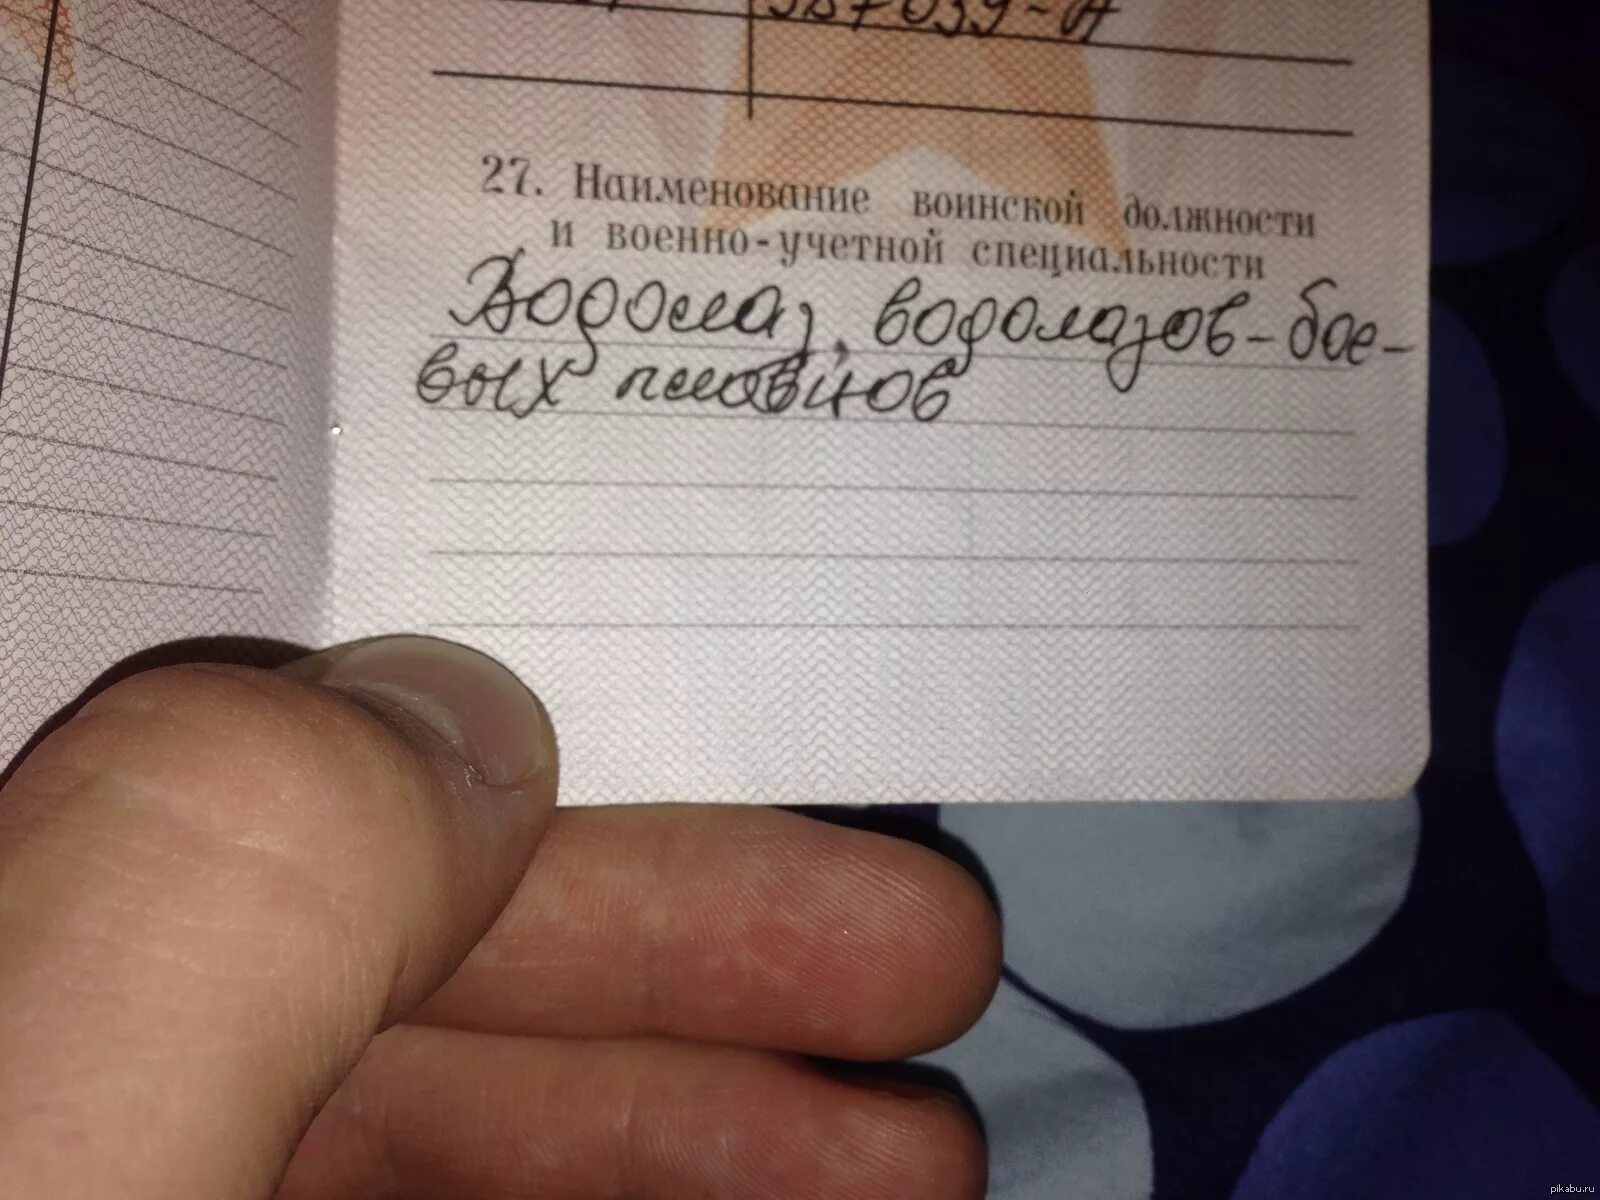 587039-А
27. Наименование воинской должности
и военно-учетной специальности
Водолаз, водолазов-бое-
вых пловцов
pikabu.ru